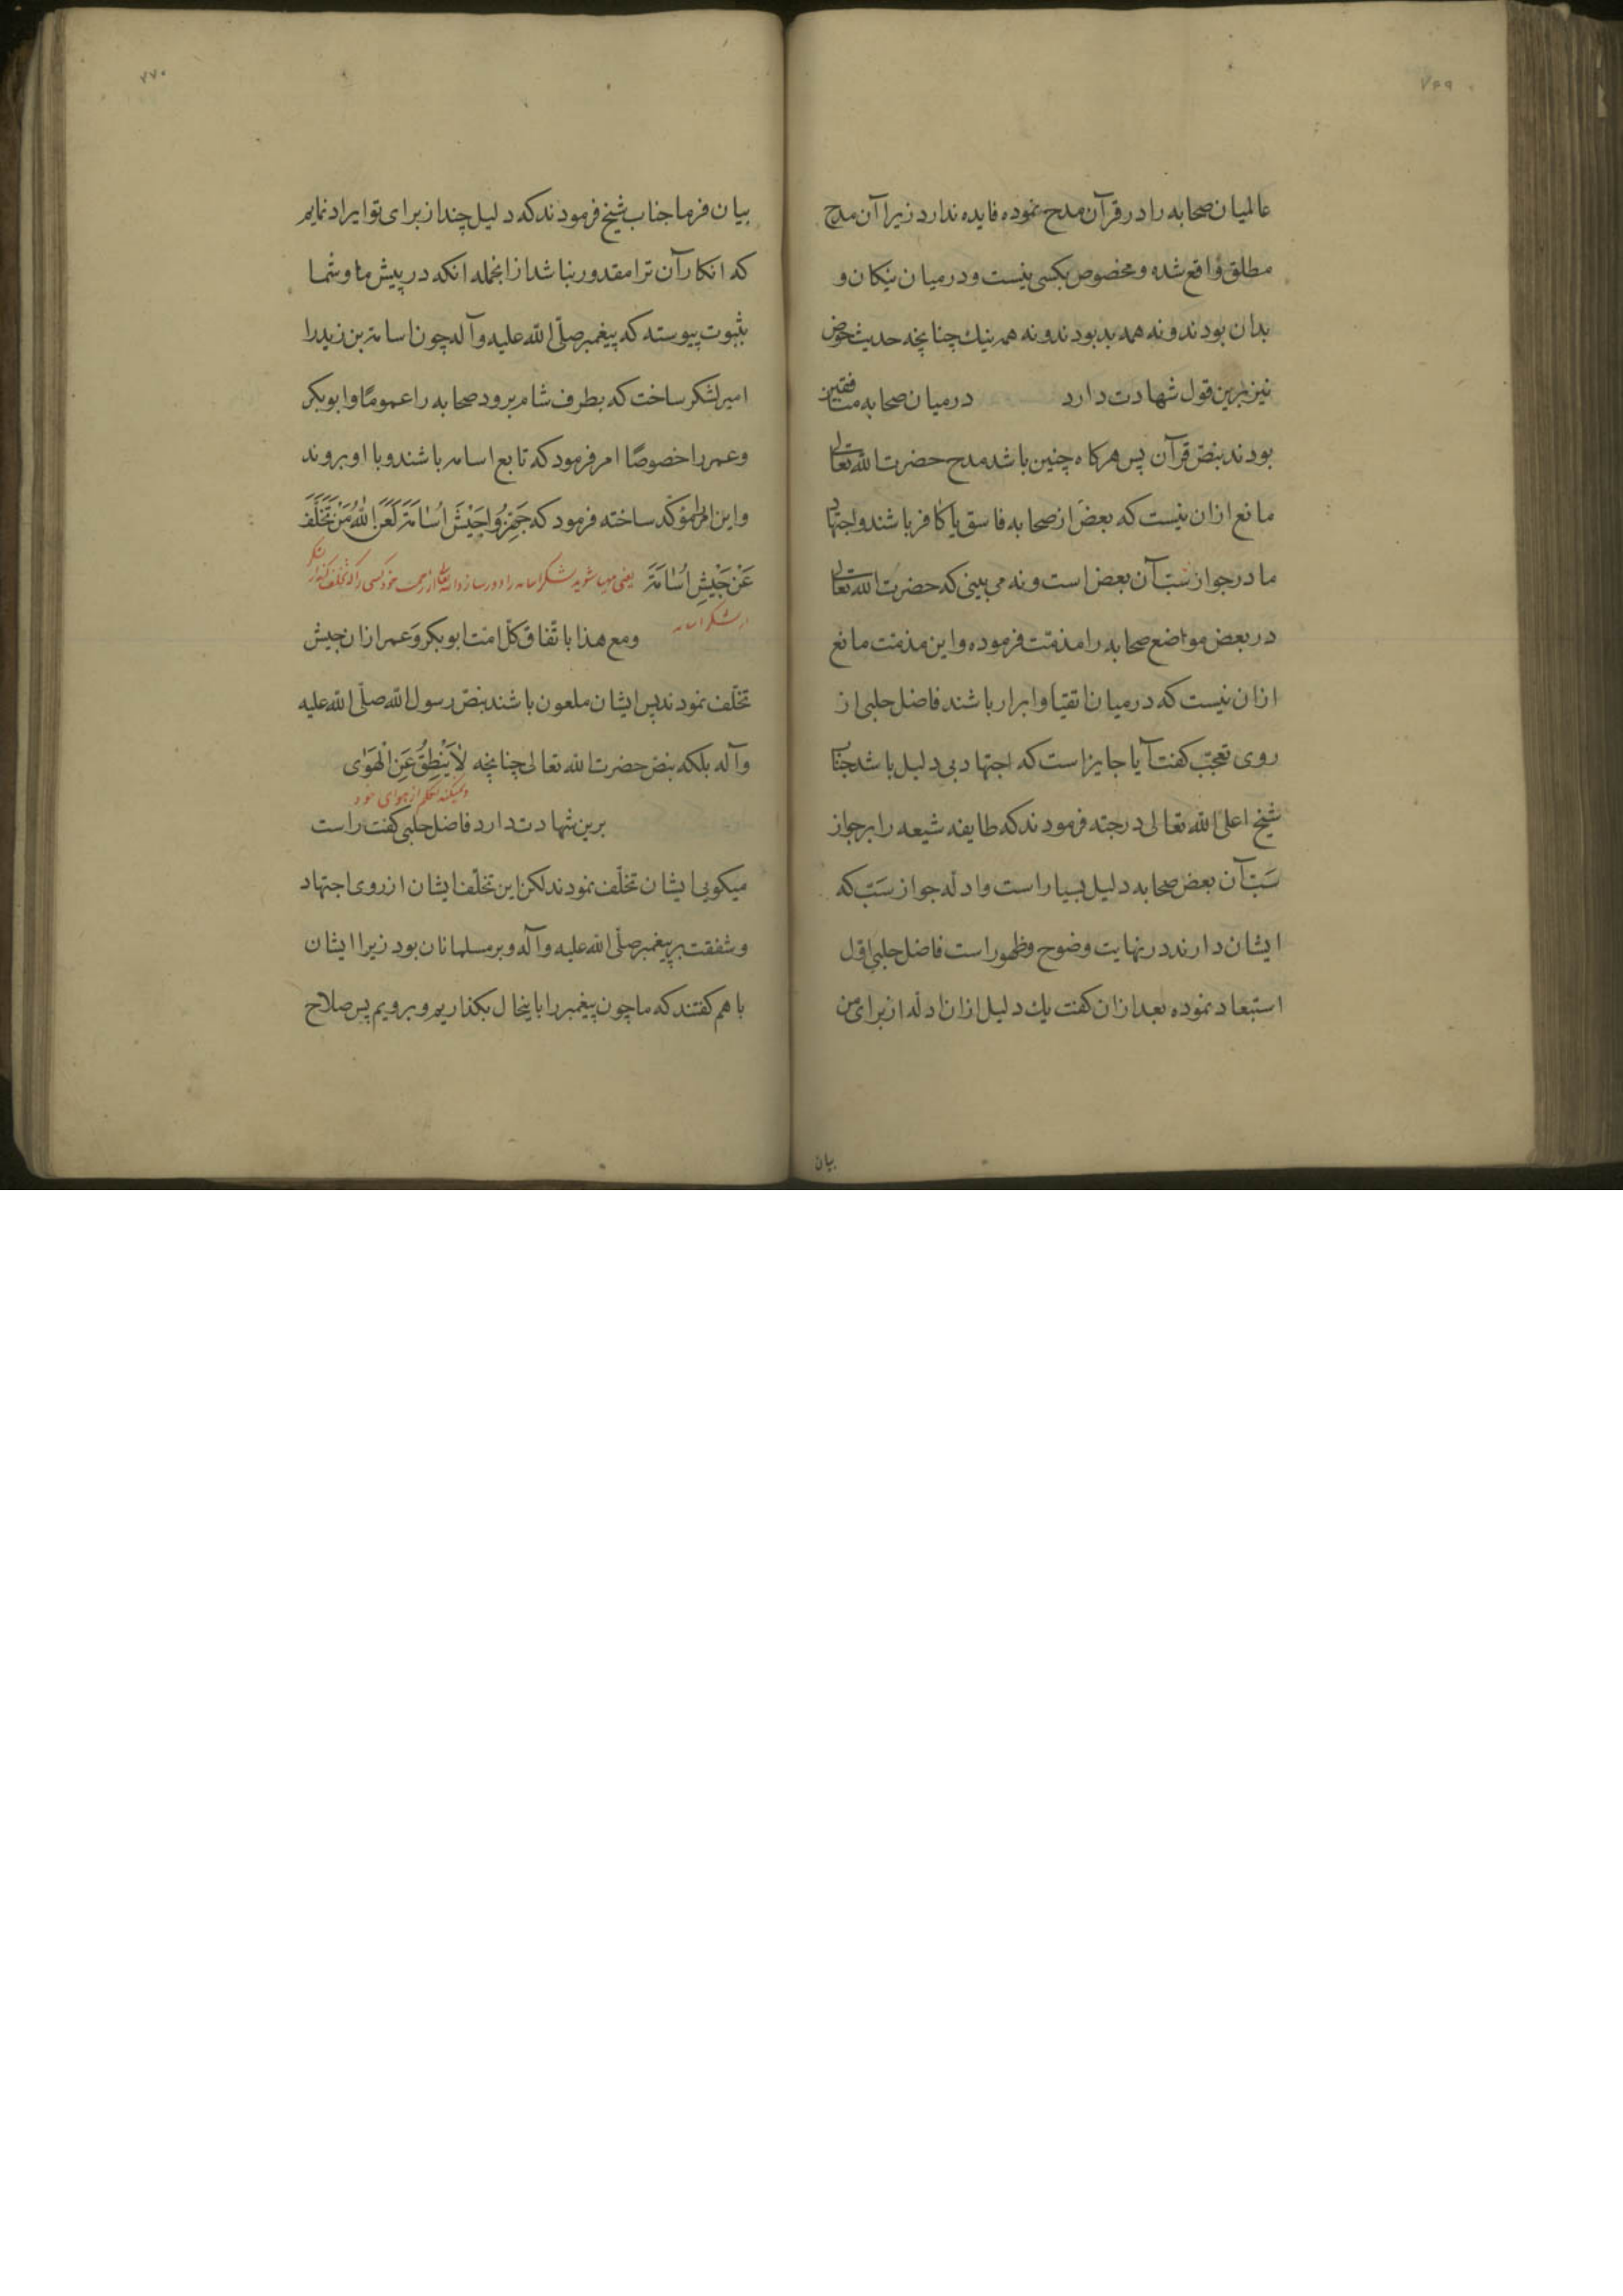 ۷۶۹
عالمیان صحابه را در قرآن مدح نموده فایده ندارد زیرا آن مدح
مطلق واقع شده و مخصوص بکسی نیست و در میان نیکان و
بدان بودند و نه همه بد بودند و نه همه نیک چنانچه حدیث حوض
نیز برین قول شهادت دارد در میان صحابه منافقین
بودند بنص قرآن پس هر کاه چنین باشد مدح حضرت الله تعالی
مانع ازان نیست که بعض از صحابه فاسق یا کافر باشند و اجتهاد
ما در جواز سَبّ آن بعض است و نه می بینی که حضرت الله تعالی
در بعض مواضع صحابه را مذمّت فرموده و این مذمّت مانع
ازان نیست که در میان اتقیا و ابرار باشند فاضل حلبی از
روی تعجّب کفت آیا جایز است که اجتهاد بی دلیل باشد جناب
شیخ اعلی الله تعالی درجته فرمودند که طایفه شیعه را بر جواز
سَبّ آن بعض صحابه دلیل بسیار است و ادلّه جواز سَبّ که
ایشان دارند در نهایت وضوح و ظهور است فاضل حلبی اوّل
استبعاد نموده بعد ازان کفت یک دلیل ازان ادلّه از برای من
بیان
۷۷۰
بیان فرما جناب شیخ فرمودند که دلیل چند از برای تو ایراد نمایم
که انکار آن ترا مقدور نباشد ازانجمله انکه در پیش ما و شما
بثبوت پیوسته که پیغمبر صلّی الله علیه و آله چون اسامة بن زید را
امیر لشکر ساخت که بطرف شام برود صحابه را عمومًا و ابوبکر
و عمر را خصوصًا امر فرمود که تابع اسامه باشند و با او بروند
و این امر را مؤکّد ساخته فرمود که جَهِّزُوا جَیْشَ اُسٰامَةَ لَعَنَ اللهُ مَنْ تَخَلَّفَ
عَنْ جَیْشِ اُسٰامَةَ یعنی مهیا شوید لشکر اسامه را دور سازد الله تعالی از رحمت خود کسی را که تخلف کند از لشکر
از لشکر اسامه
و مع هذا باتّفاق کلّ امّت ابوبکر و عمر ازان جیش
تخلّف نمودند پس ایشان ملعون باشند بنصّ رسول الله صلّی الله علیه
و آله بلکه بنصّ حضرت الله تعالی چنانچه لاٰیَنْطِقُ عَنِ الْهَوٰی
و نمیکند تکلم از هوای خود
برین شهادت دارد فاضل حلبی کفت راست
میکویی ایشان تخلّف نمودند لکن این تخلّف ایشان از روی اجتهاد
و شفقت بر پیغمبر صلّی الله علیه و آله و بر مسلمانان بود زیرا ایشان
با هم کفتند که ما چون پیغمبر را باینحال بکذاریم و برویم پس صلاح